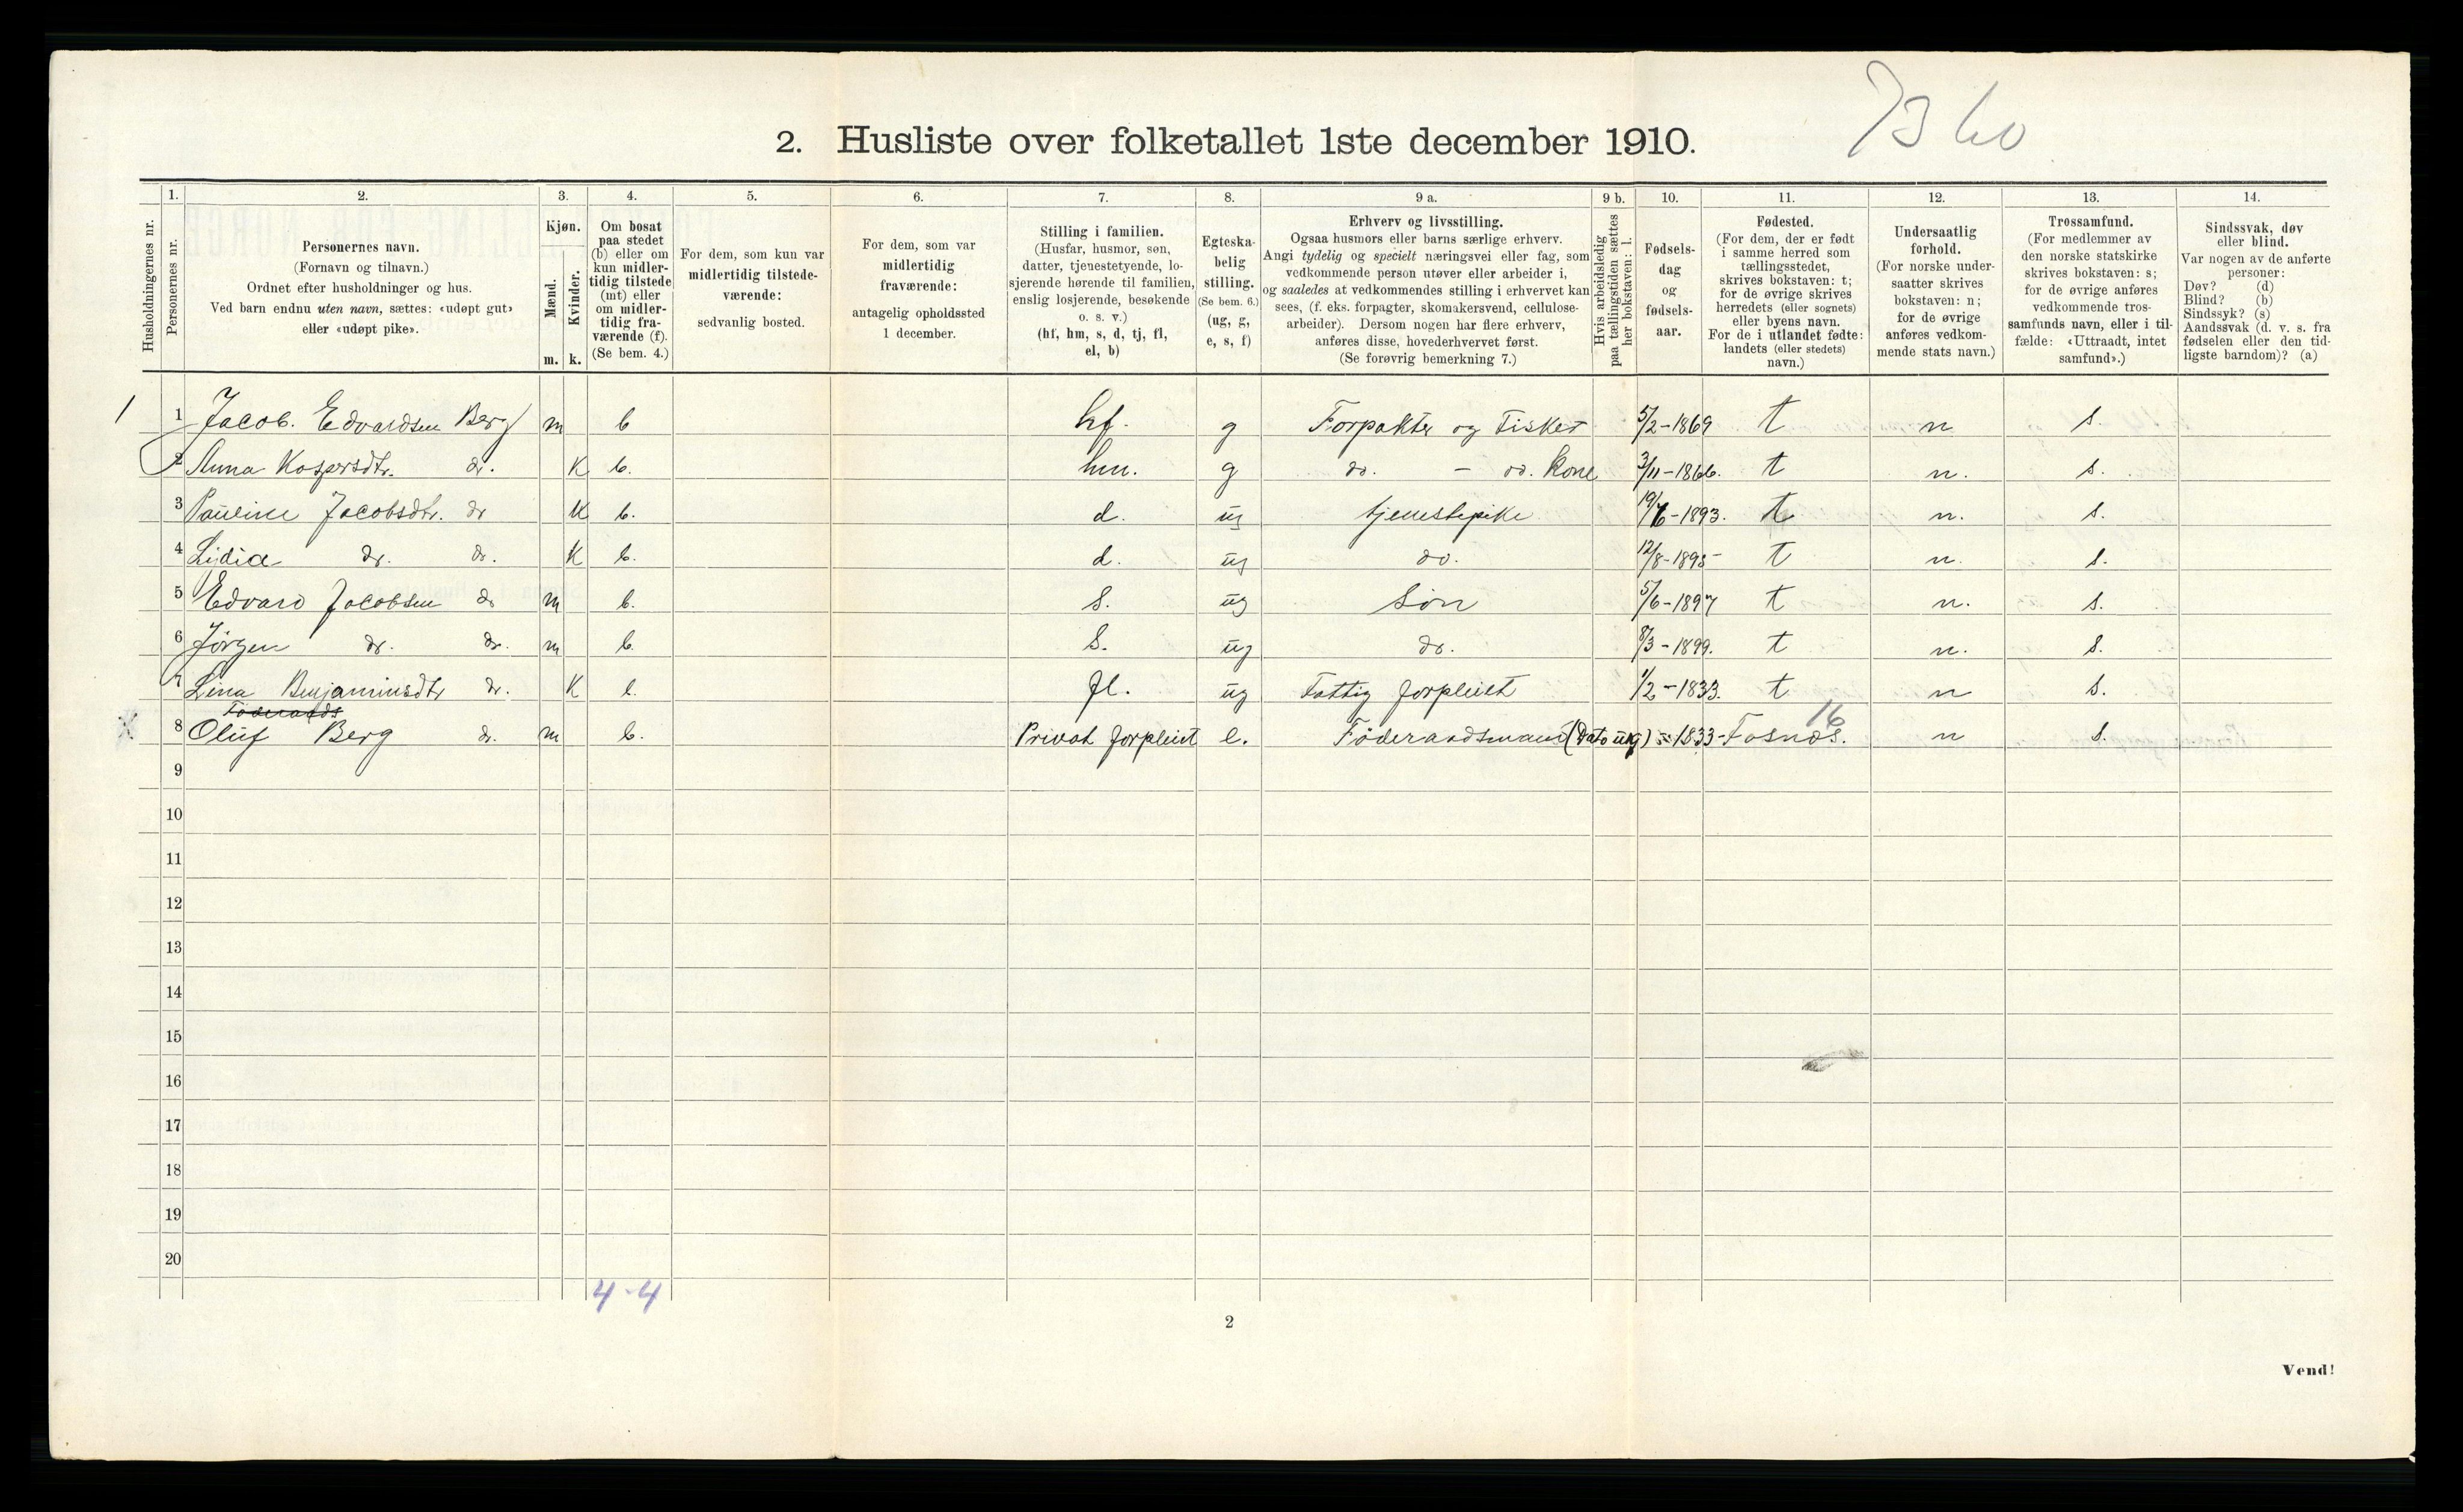 7360
2. Husliste over folketallet 1ste december 1910.
Husholdningernes nr.
1.
Personernes nr.
2.
Personernes navn.
(Fornavn og tilnavn.)
Ordnet efter husholdninger og hus.
Ved barn endnu uten navn, sættes: «udøpt gut»
eller «udøpt pike».
3.
Kjøn.
Mænd.
Kvinder.
m. k.
4.
Om bosat
paa stedet
(b) eller om
kun midler-
tidig tilstede
(mt) eller
om midler-
tidig fra-
værende (f).
(Se bem. 4.)
5.
For dem, som kun var
midlertidig tilstede-
værende:
sedvanlig bosted.
6.
For dem, som var
midlertidig
fraværende:
antagelig opholdssted
1 december.
7.
Stilling i familien.
(Husfar, husmor, søn,
datter, tjenestetyende, lo-
sjerende hørende til familien,
enslig losjerende, besøkende
o. s. v.)
(hf, hm, s, d, tj, fl,
el, b)
8.
Egteska-
belig
stilling.
(Se bem. 6.)
(ug, g,
e, s, f)
9 a.
Erhverv og livsstilling.
Ogsaa husmors eller barns særlige erhverv.
Angi tydelig og specielt næringsvei eller fag, som
vedkommende person utøver eller arbeider i,
og saaledes at vedkommendes stilling i erhvervet kan
sees, (f. eks. forpagter, skomakersvend, cellulose-
arbeider). Dersom nogen har flere erhverv,
anføres disse, hovederhvervet først.
(Se forøvrig bemerkning 7.)
9 b.
Hvis arbeidsledig
paa tællingstiden sættes
her bokstaven: l.
10.
Fødsels-
dag
og
fødsels-
aar.
11.
Fødested.
(For dem, der er født
i samme herred som
tællingsstedet,
skrives bokstaven: t;
for de øvrige skrives
herredets (eller sognets)
eller byens navn.
For de i utlandet fødte:
landets (eller stedets)
navn.)
12.
Undersaatlig
forhold.
(For norske under-
saatter skrives
bokstaven: n;
for de øvrige
anføres vedkom-
mende stats navn.)
13.
Trossamfund.
(For medlemmer av
den norske statskirke
skrives bokstaven: s;
for de øvrige anføres
vedkommende tros-
samfunds navn, eller i til-
fælde: «Uttraadt, intet
samfund».)
14.
Sindssvak, døv
eller blind.
Var nogen av de anførte
personer:
Døv? (d)
Blind? (b)
Sindssyk? (s)
Aandssvak (d. v. s. fra
fødselen eller den tid-
ligste barndom)? (a)
1 1 Jacob. Edvardsen Berg m b hf. g Forpakter og Fisker 5/2-1869 t n s.
2 Anna Kaspersdtr. do. K b. hm. g do. - do. Kone 3/11-1866. t n. s.
3 Pauline Jacobsdtr. do K b. d. ug tjenestepike 19/6-1893. t n. s.
4 Lidia do. do. K b. d. ug do. 12/8-1895- t n. s.
5 Edvard Jacobsen do m b. s. ug Søn 5/6-1897 t n. s.
6 Jörgen do. do. m b. s. ug do. 8/3-1899. t n. s.
7 Lina Benjaminsdtr do. K b. fl. ug Fattig forpleiet 1/2-1833. t n s.
Föderaads
16
X 8 Oluf Berg do. m b. Privat forpleiet e. Föderaadsmand (Dato ug) 1833- Fosnæs. n s.
9
10
11
12
13
14
15
16
17
18
19
20
4-4
2
Vend!